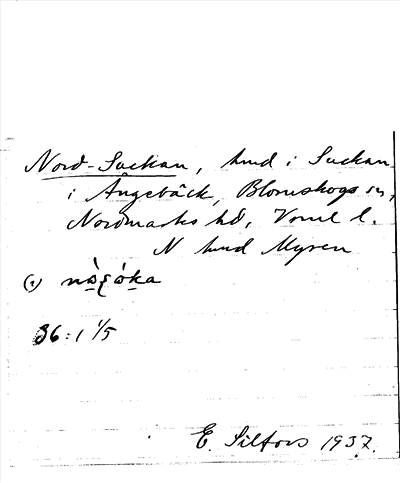 Nord-Suckan, hmd i Suckan
i Ångebäck, Blomskogs sn,
Nordmarks hd, Verml l.
N hmd Myren
36:1 1/5
E. Silfors 1937.